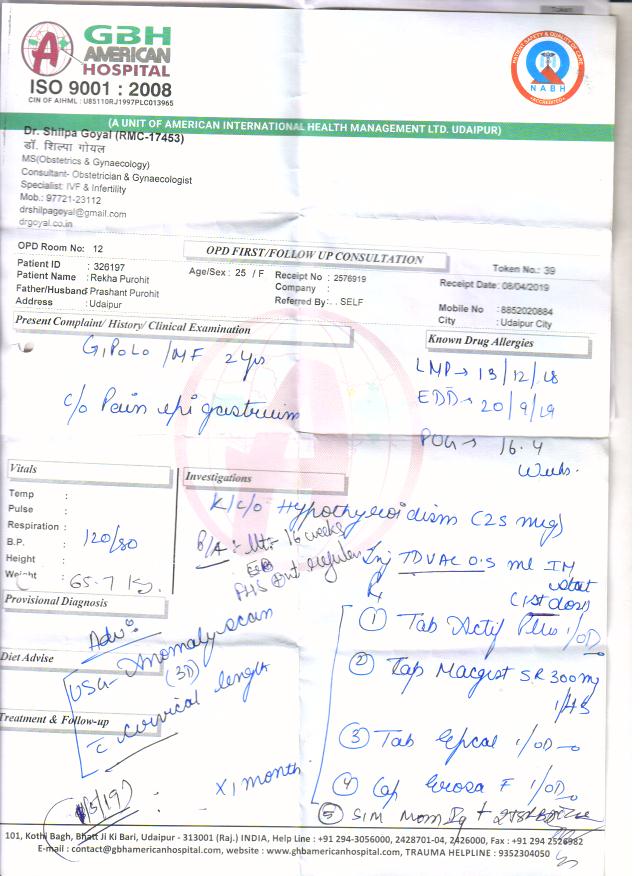 Token
GBH
AMERICAN
HOSPITAL
ISO 9001 : 2008
CIN OF AIHML : U85110RJ1997PLC013965
PATIENT SAFETY & QUALITY OF CARE
NABH
ACCREDITED
(A UNIT OF AMERICAN INTERNATIONAL HEALTH MANAGEMENT LTD. UDAIPUR)
Dr. Shilpa Goyal (RMC-17453)
डॉ. शिल्पा गोयल
MS(Obstetrics & Gynaecology)
Consultant- Obstetrician & Gynaecologist
Specialist: IVF & Infertility
Mob.: 97721-23112
drshilpagoyal@gmail.com
drgoyal.co.in
OPD Room No: 12
OPD FIRST/FOLLOW UP CONSULTATION
Token No.: 39
Patient ID : 326197
Age/Sex : 25 / F
Receipt No : 2576919
Receipt Date: 08/04/2019
Patient Name : Rekha Purohit
Company :
Father/Husband: Prashant Purohit
Referred By: . SELF
Mobile No : 8852020884
Address : Udaipur
City : Udaipur City
Present Complaint/ History/ Clinical Examination
Known Drug Allergies
G1P0L0 / MF 2 yrs
c/o Pain epigastrium
LMP → 13/12/18
EDD → 20/9/19
POG → 16.4
Weeks.
Vitals
Temp :
Pulse :
Respiration :
B.P. : 120/80
Height :
Weight : 65.7 Kg.
Investigations
K/c/o Hypothyroidism (25 mcg)
P/A :- Ut.- 16 weeks
FHS regular
Inj TDVAC 0.5 ml IM
stat
(1st dose)
Provisional Diagnosis
Adv:
USG- Anomaly scan
(3D)
c̄ cervical length
Diet Advise
Treatment & Follow-up
x 1 month
① Tab Actif Plus 1/OD
② Tap Macgest SR 300 mg
1/HS
③ Tab 1/OD
④ Cap F 1/OD
⑤ SIM Mom +
101, Kothi Bagh, Bhatt Ji Ki Bari, Udaipur - 313001 (Raj.) INDIA, Help Line : +91 294-3056000, 2428701-04, 2426000, Fax : +91 294 2526982
E-mail : contact@gbhamericanhospital.com, website : www.gbhamericanhospital.com, TRAUMA HELPLINE : 9352304050